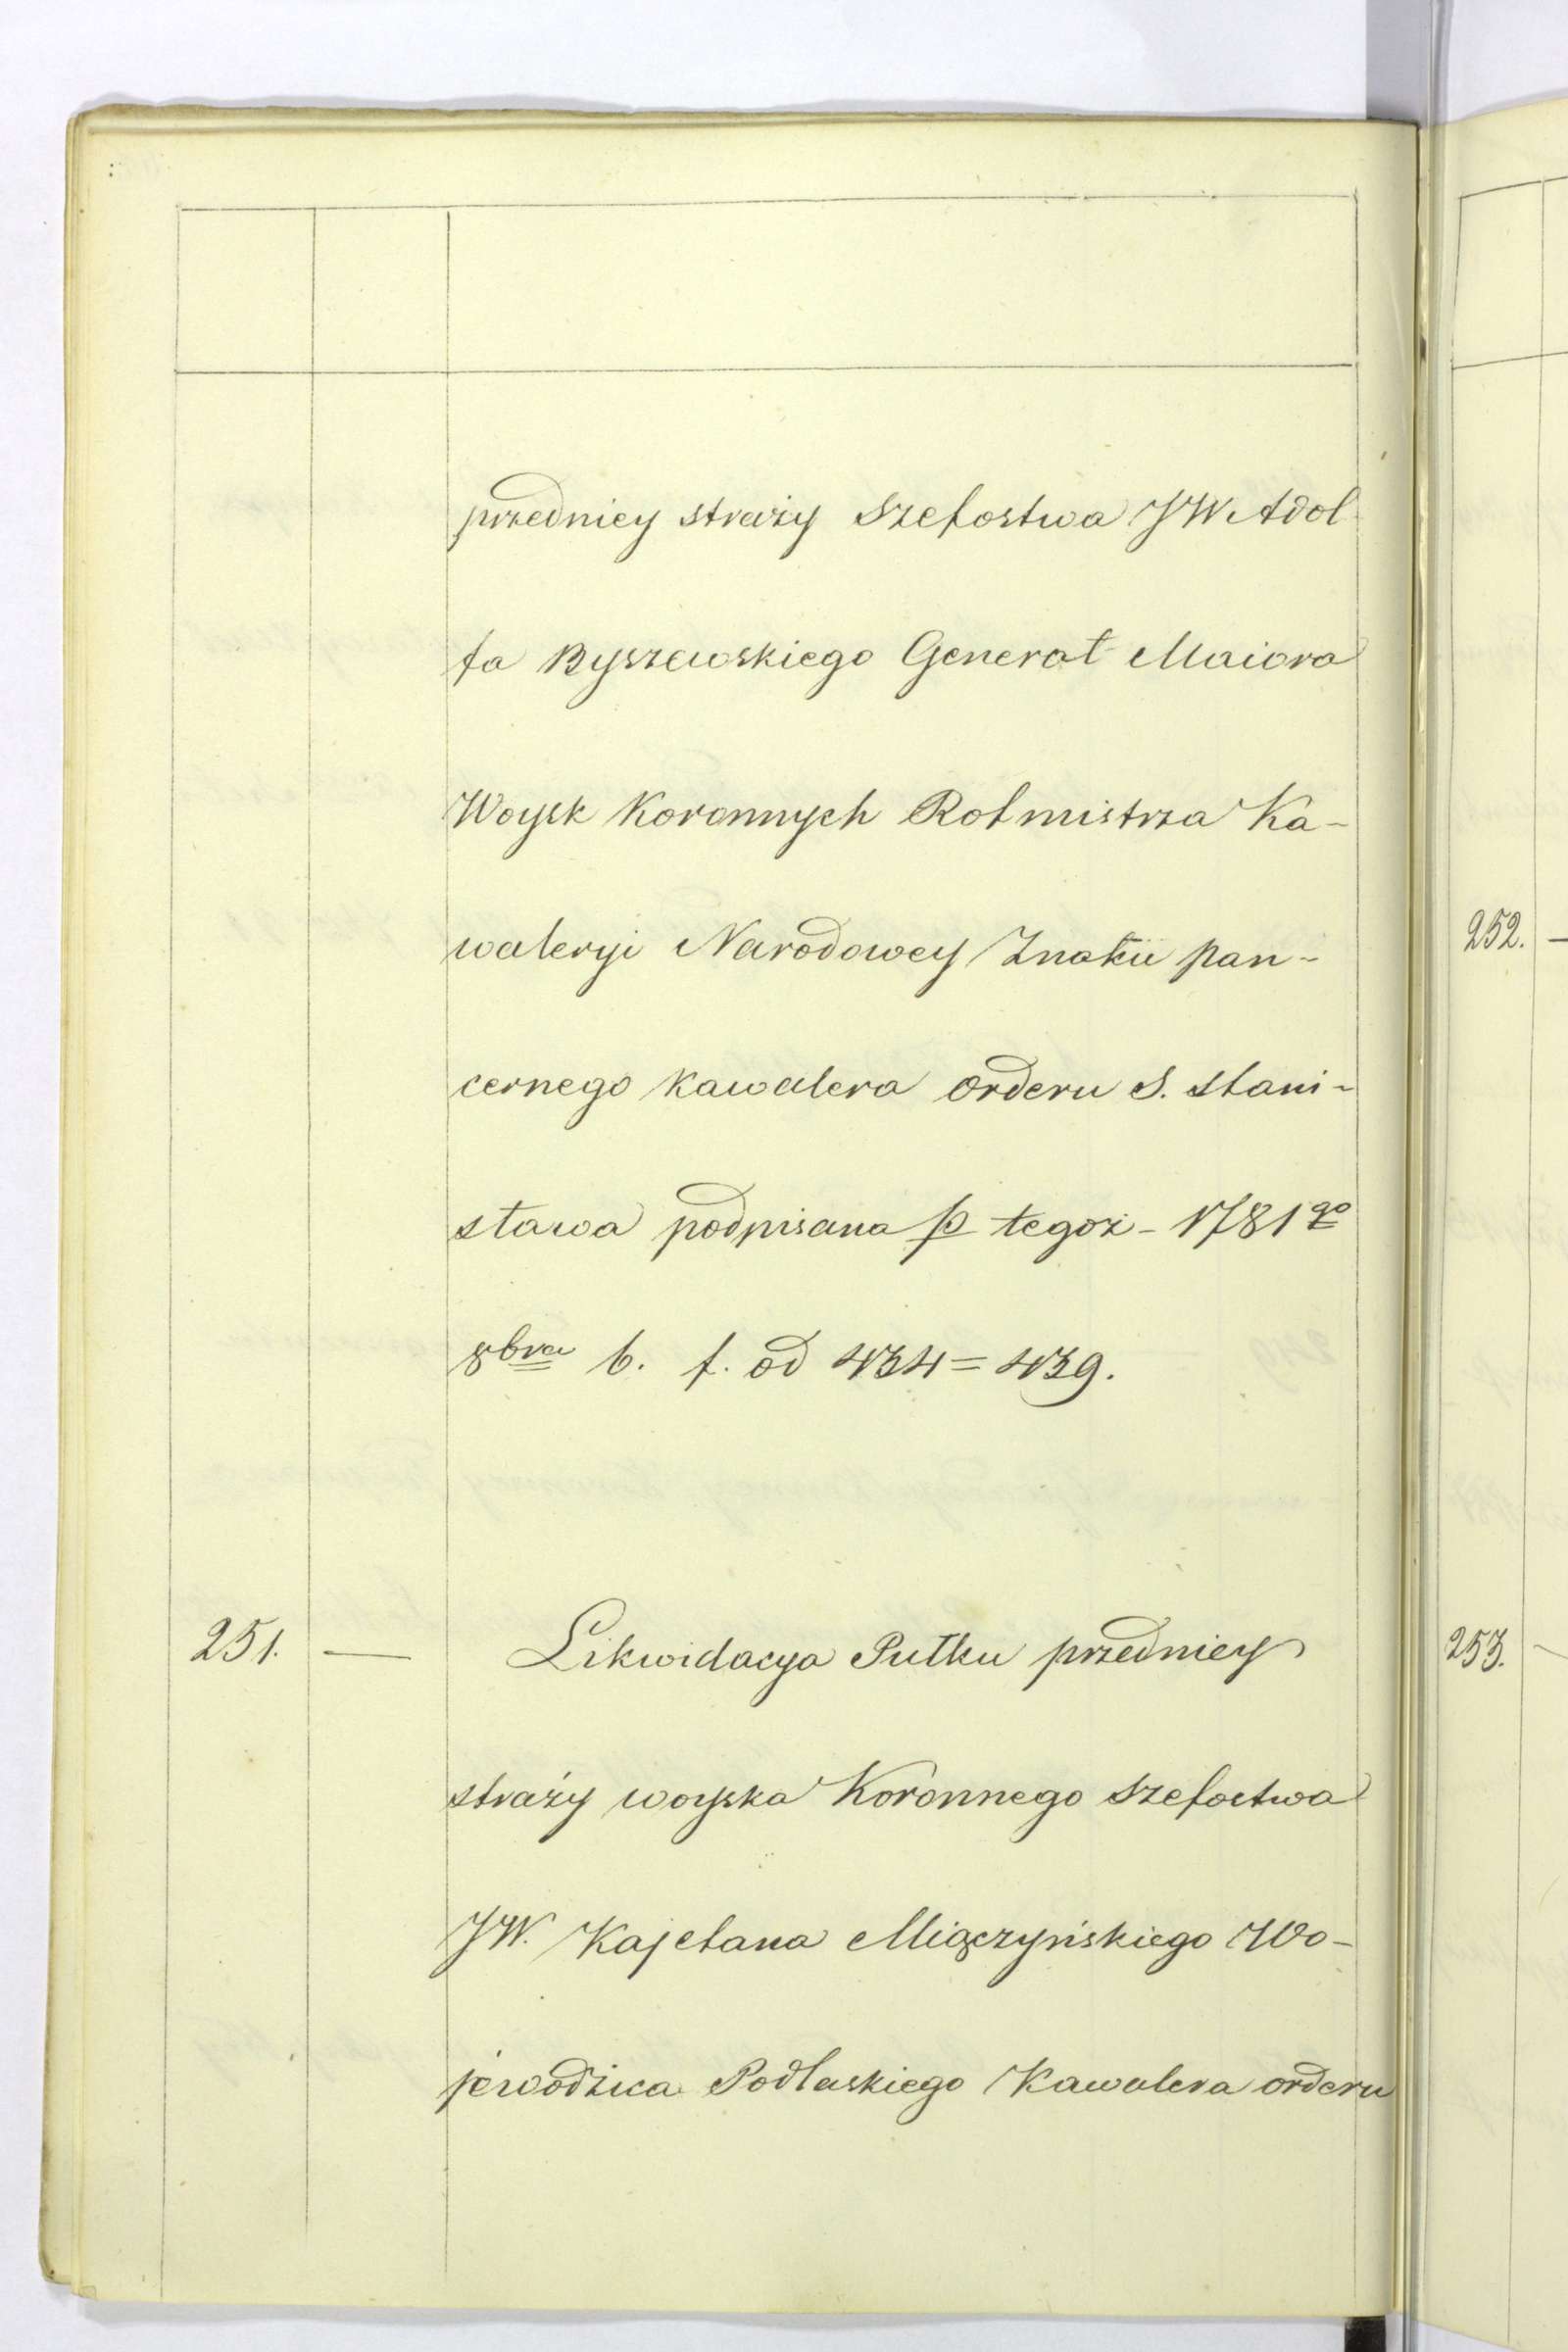 przedniey straży Szefostwa JW Adol-
fa Byszewskiego Generał Maiora
Woysk Koronnych Rotmistrza Ka-
waleryi Narodowey Znaku pan-
cernego Kawalera orderu S. Stani-
sława podpisana p tegoż - 1781 go
8bra 6. f. od 434 = 439.
251. — Likwidacya Pułku przedniey
straży woyska Koronnego Szefostwa
JW. Kajetana Miączyńskiego Wo-
jewodzica Podlaskiego Kawalera orderu
252. —
253. —